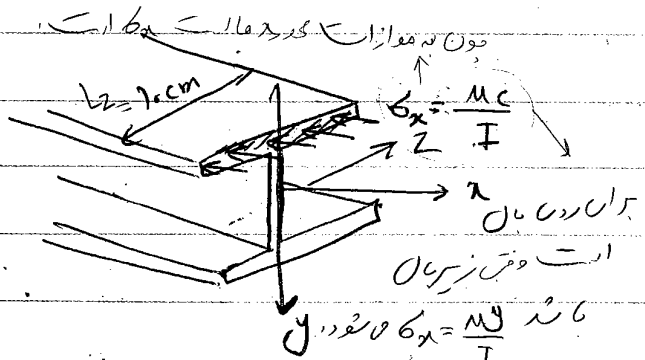 چون به موازات محور x ها است σx است.
Lz = 10 cm
σx = Mc / I
z
x
برای روی بال
است وقتی زیر بال
y
باشد σx = My / I می‌شود.